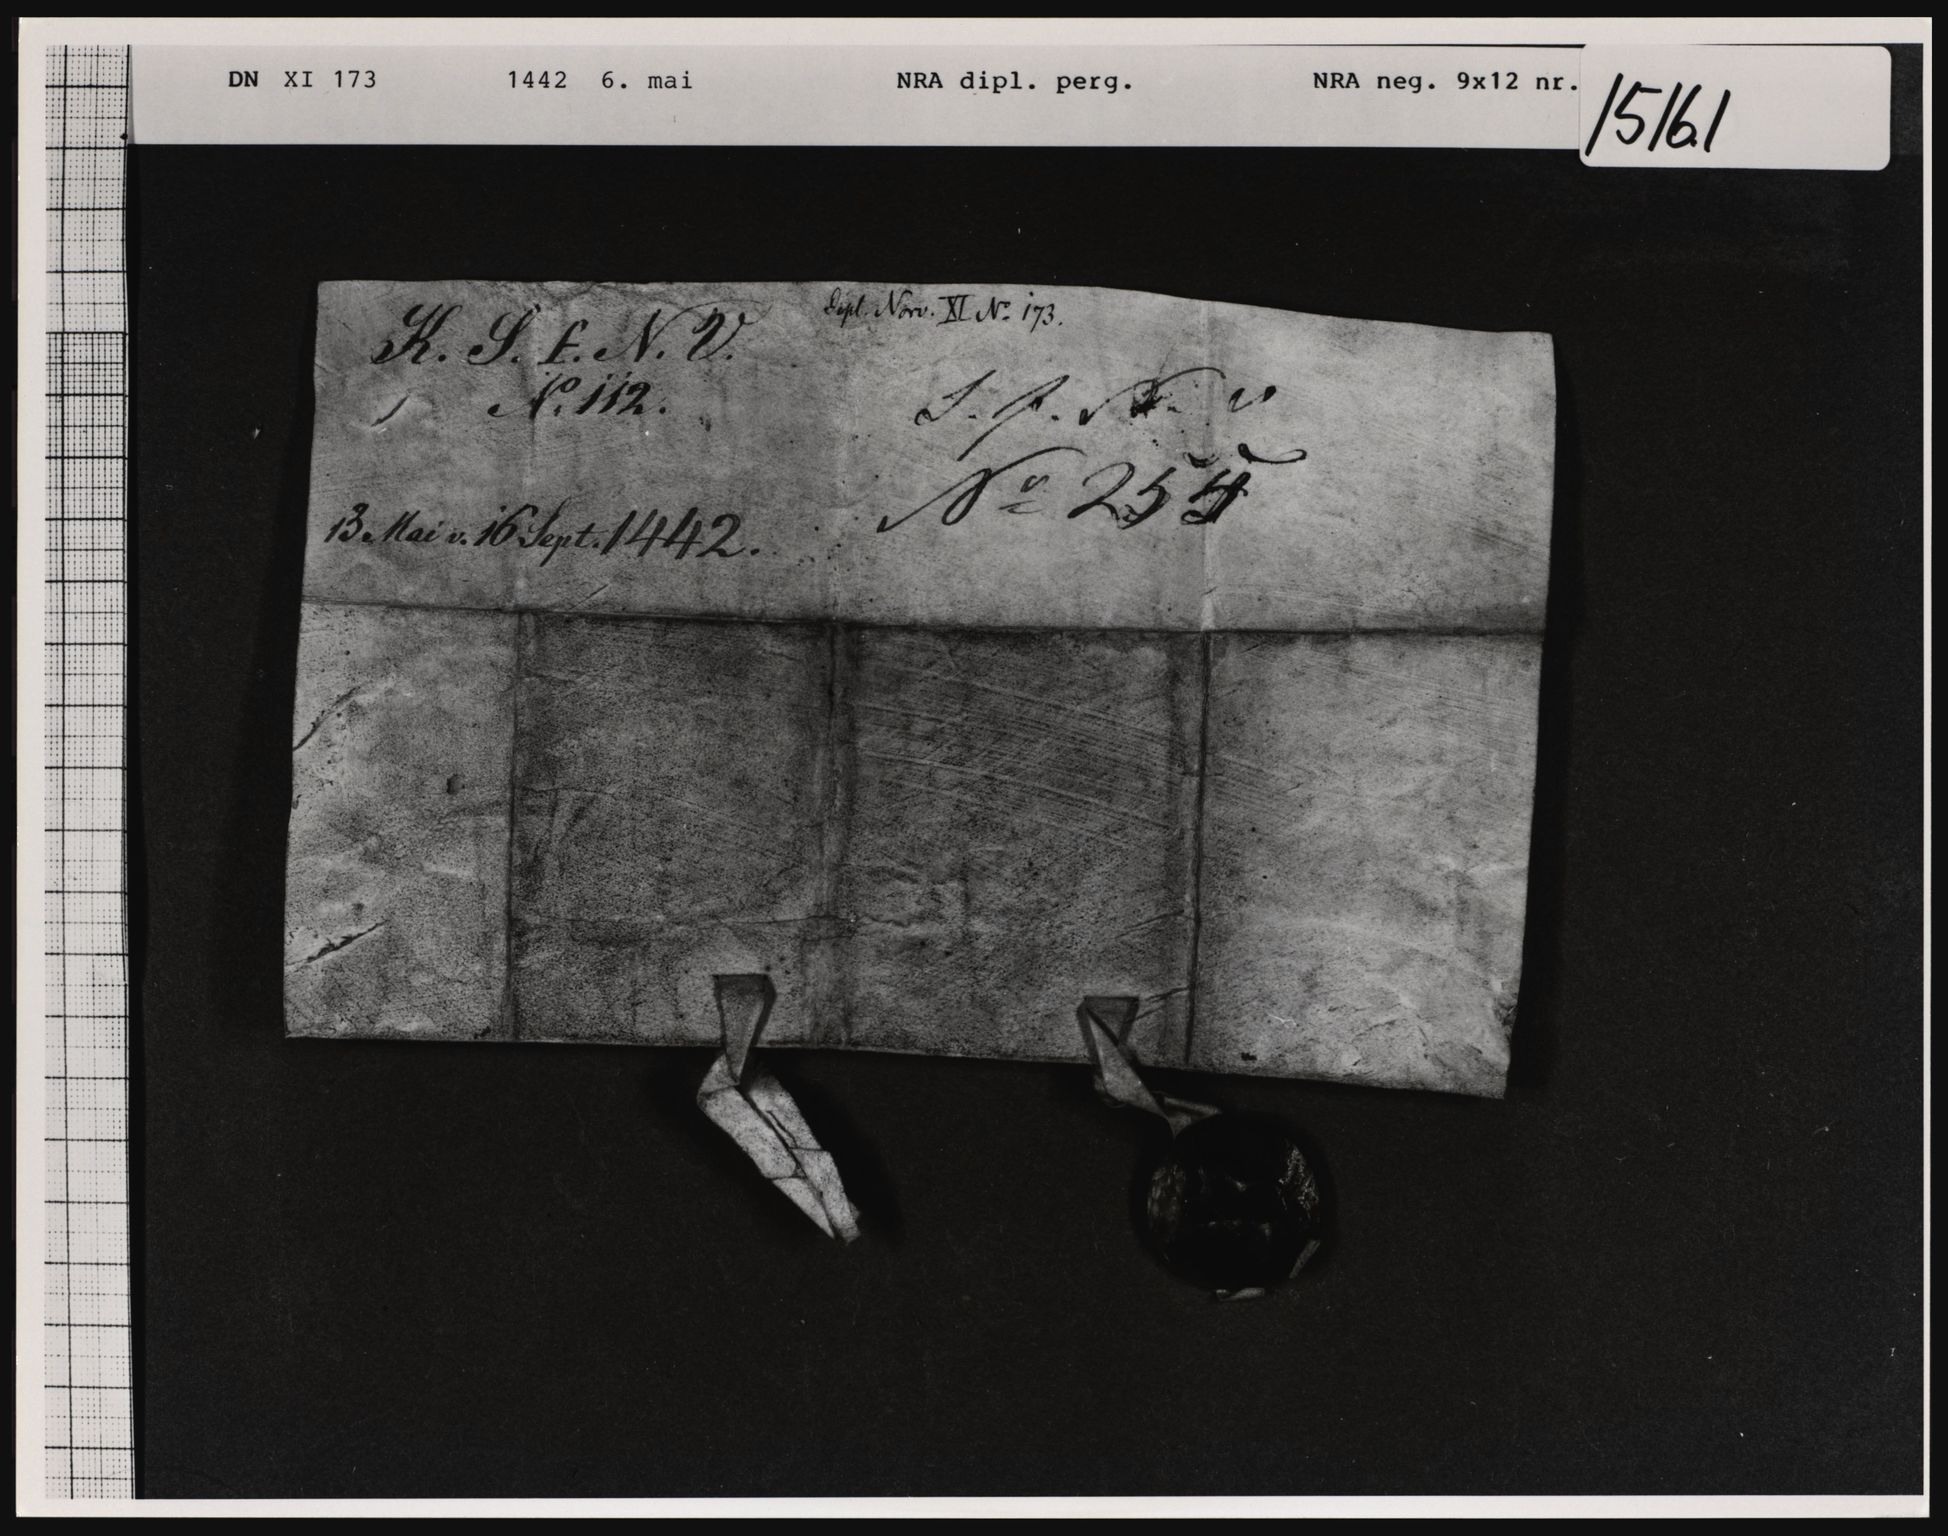 DN XI 173 1442 6. mai NRA dipl. perg. NRA neg. 9x12 nr. 15161
Dipl. Norv. XI No. 173.
K. S. f. N. V.
No. 112.
S. f. N. V
No 255
13 Mai v. 16 Sept. 1442.